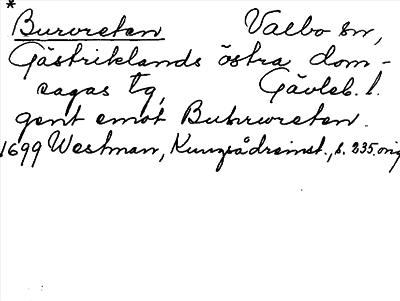 * Burvreten Valbo sn,
Gästriklands östra dom-
sagas tg, Gävleb. l.
gent emot Buhrwreten.
1699 Westman, Kungsådreinst., s. 235. orig